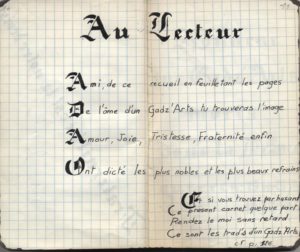 Au Lecteur
Ami, de ce recueil en feuilletant les pages
De l'âme d'un Gadz'Arts tu trouveras l'image
Amour, Joie, Tristesse, Fraternité enfin
Ont dicté les plus nobles et les plus beaux refrains
Et si vous trouvez par hasard
Ce présent carnet quelque part
Rendez le moi sans retard
Ce sont les trad's d'un Gadz'Arts
cf. p.